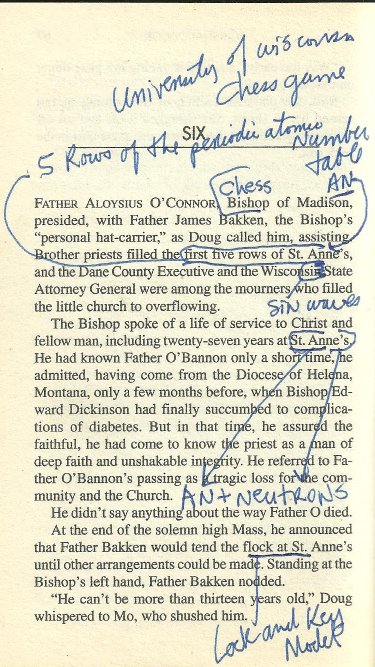 University of wisconsin
chess game
SIX
5 Rows of the periodic atomic
Number
table
AN
chess
FATHER ALOYSIUS O'CONNOR, Bishop of Madison,
presided, with Father James Bakken, the Bishop's
"personal hat-carrier," as Doug called him, assisting.
Brother priests filled the first five rows of St. Anne's,
and the Dane County Executive and the Wisconsin State
Attorney General were among the mourners who filled
the little church to overflowing.
sin waves
The Bishop spoke of a life of service to Christ and
fellow man, including twenty-seven years at St. Anne's.
He had known Father O'Bannon only a short time, he
admitted, having come from the Diocese of Helena,
Montana, only a few months before, when Bishop Ed-
ward Dickinson had finally succumbed to complica-
tions of diabetes. But in that time, he assured the
faithful, he had come to know the priest as a man of
deep faith and unshakable integrity. He referred to Fa-
ther O'Bannon's passing as a tragic loss for the com-
munity and the Church.
AN + NEUTRONS
He didn't say anything about the way Father O died.
At the end of the solemn high Mass, he announced
that Father Bakken would tend the flock at St. Anne's
until other arrangements could be made. Standing at the
Bishop's left hand, Father Bakken nodded.
"He can't be more than thirteen years old," Doug
whispered to Mo, who shushed him.
Lock and Key
Model